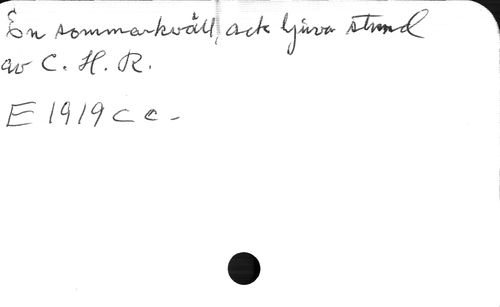 En sommarkväll, ack ljuva stund
av C. H. R.
E 1919 c c -